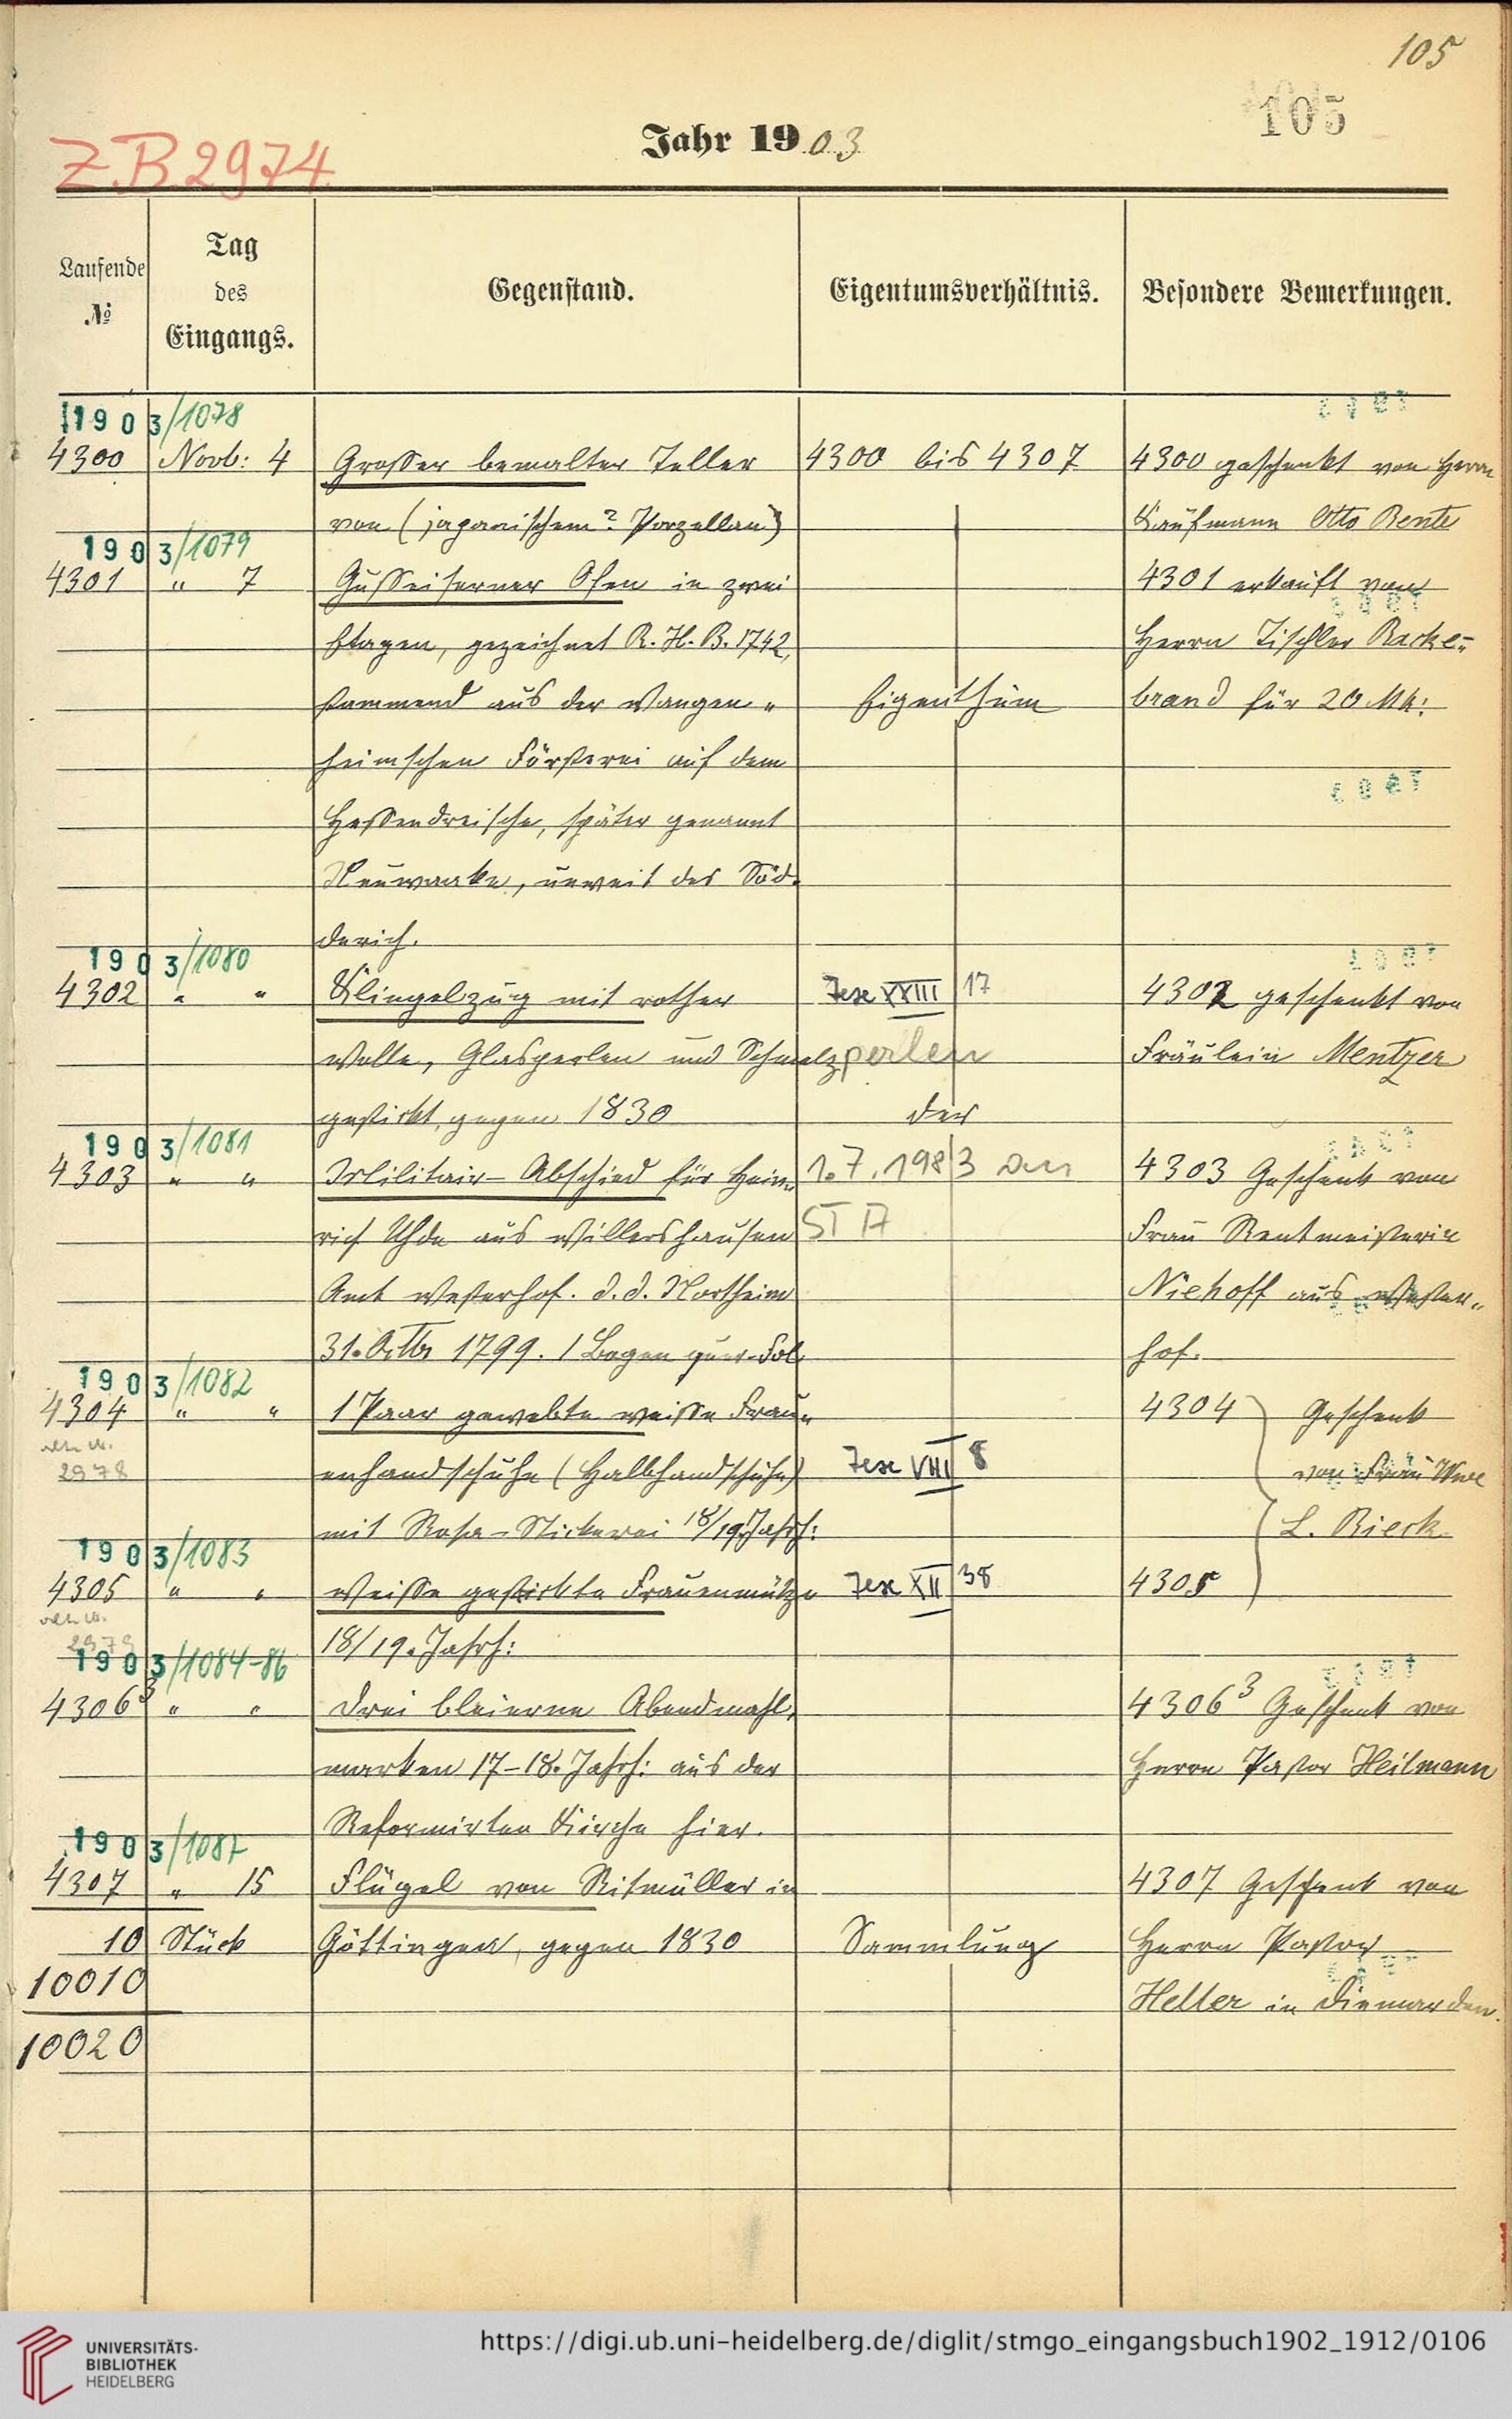 105
105
Jahr 1903
Z.B 2974
Laufende
№
Tag
des
Eingangs.
Gegenstand.
Eigentumsverhältnis.
Besondere Bemerkungen.
1903/1078
4300 Novb: 4 Grosser bemalter Teller 4300 bis 4307 4300 geschenkt von Herrn
von (japanischem? Porzellan) Kaufmann Otto Bente
1903/1079
4301 " 7 Gusseiserner Ofen in zwei 4301 erkauft von
Etagen, gezeichnet R. H. B. 1742, Herrn Tischler Racke-
stammend aus der Wangen- Eigenthum brand für 20 Mk:
heimschen Försterei auf dem
Hessendreische, später genannt
Neuwaake, unweit des Söd-
derich.
1903/1080
4302 " " Klingelzug mit rother Texe XXIII 17 4302 geschenkt von
Wolle, Glasperlen und Schmelzperlen Fräulein Mentzer
gestickt, gegen 1830 der
1903/1081
4303 " " Militair-Abschied für Hein- 1.7.1983 an 4303 Geschenk von
rich Uhde aus Willershausen STA Frau Rentmeisterin
Amt Westerhof. d. d. Northeim Niehoff aus Wester-
31. Octbr 1799. 1 Bogen quer-Fol. hof.
1903/1082
4304 " " 1 Paar gewebte weisse Frau- 4304 Geschenk
alte Nr.
2978
enhandschuhe (Halbhandschuhe) Texe VIII 8 von Frau Wwe
mit Rosa-Stickerei 18/19. Jahrh: L. Rieck
1903/1083
4305 " " Weisse gestickte Frauenmütze Texe XII 38 4305
alte Nr.
2979
18/19. Jahrh:
1903/1084-86
4306³ " " Drei bleierne Abendmahl- 4306³ Geschenk von
marken 17-18. Jahrh: aus der Herrn Pastor Heilmann
Reformirten Kirche hier.
1903/1087
4307 " 15 Flügel von Ritmüller in 4307 Geschenk von
10 Stück Göttingen, gegen 1830 Sammlung Herrn Pastor
10010
Heller in Diemarden.
10020
UNIVERSITÄTS-
BIBLIOTHEK
HEIDELBERG
https://digi.ub.uni-heidelberg.de/diglit/stmgo_eingangsbuch1902_1912/0106